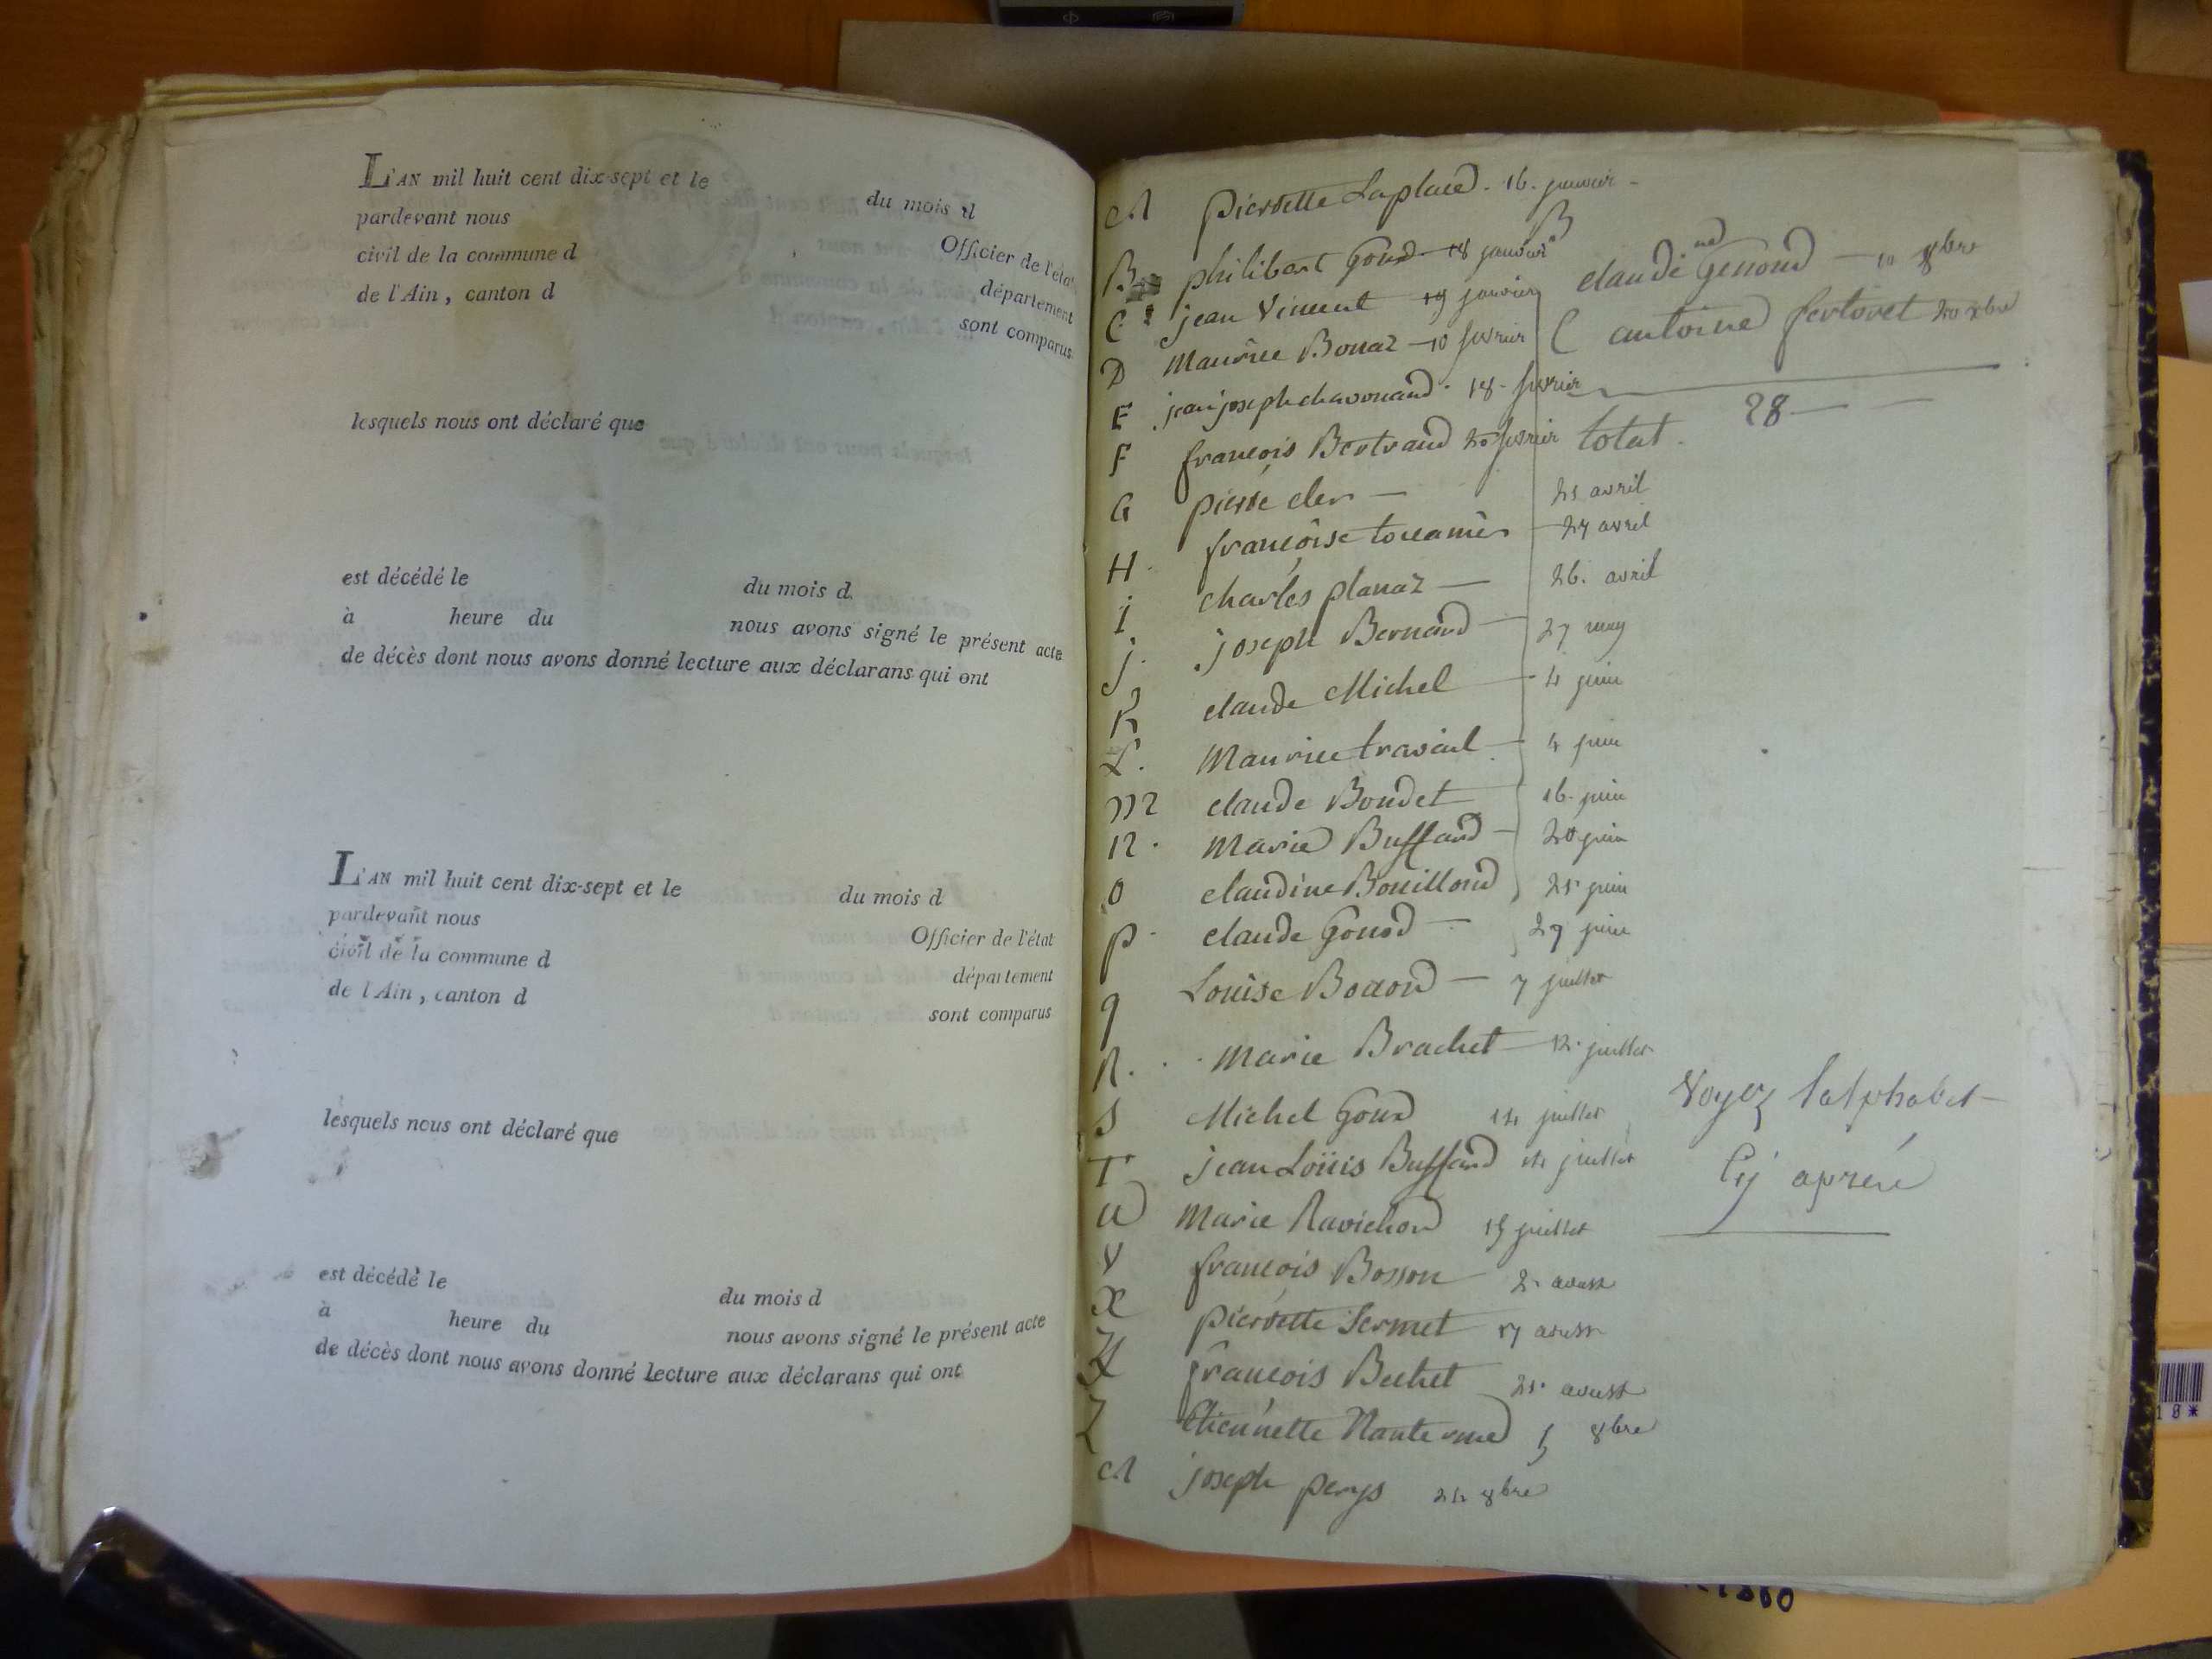 L'AN mil huit cent dix-sept et le du mois d
pardevant nous Officier de l'état
civil de la commune d département
de l'Ain, canton d sont comparus
lesquels nous ont déclaré que
est décédé le du mois d
à heure du nous avons signé le présent acte
de décès dont nous avons donné lecture aux déclarans qui ont
L'AN mil huit cent dix-sept et le du mois d
pardevant nous Officier de l'état
civil de la commune d département
de l'Ain, canton d sont comparus
lesquels nous ont déclaré que
est décédé le du mois d
à heure du nous avons signé le présent acte
de décès dont nous avons donné lecture aux déclarans qui ont
A pierrette Laplace. 16. janvier
B philibert Goud 18 janvier
C jean Vincent 19 janvier
D Maurice Bonaz 10 fevrier
E jean joseph chavouand. 18. fevrier
F francois Bertrand 20 fevrier
G pierre cler 21 avril
H. francoise 24 avril
i charles planaz 26. avril
j. joseph Bernard 27 may
K claude Michel 4 juin
L. Maurice travail 4 juin
M claude Boudet 16. juin
N. Marie Buffard 20 juin
O claudine Bouillond 25 juin
p. claude Gonod 29 juin
q Louise 7 juillet
R. Marie Brachet 12. juillet
S Michel Goud 14 juillet
T jean Loüis Buffard 14 juillet
U Marie Ravichon 15 juillet
V francois Bosson 2. aoust
X pierrette Sermet 17 aoust
Y francois Bechet 21. aoust
Z Etiennette Nanterme 5 8bre
A joseph perys 24 8bre
B claude Genond 10 xbre
C antoine fertoret 20 xbre
total. 28
Voyez l'alphabet
Cy aprés
18*